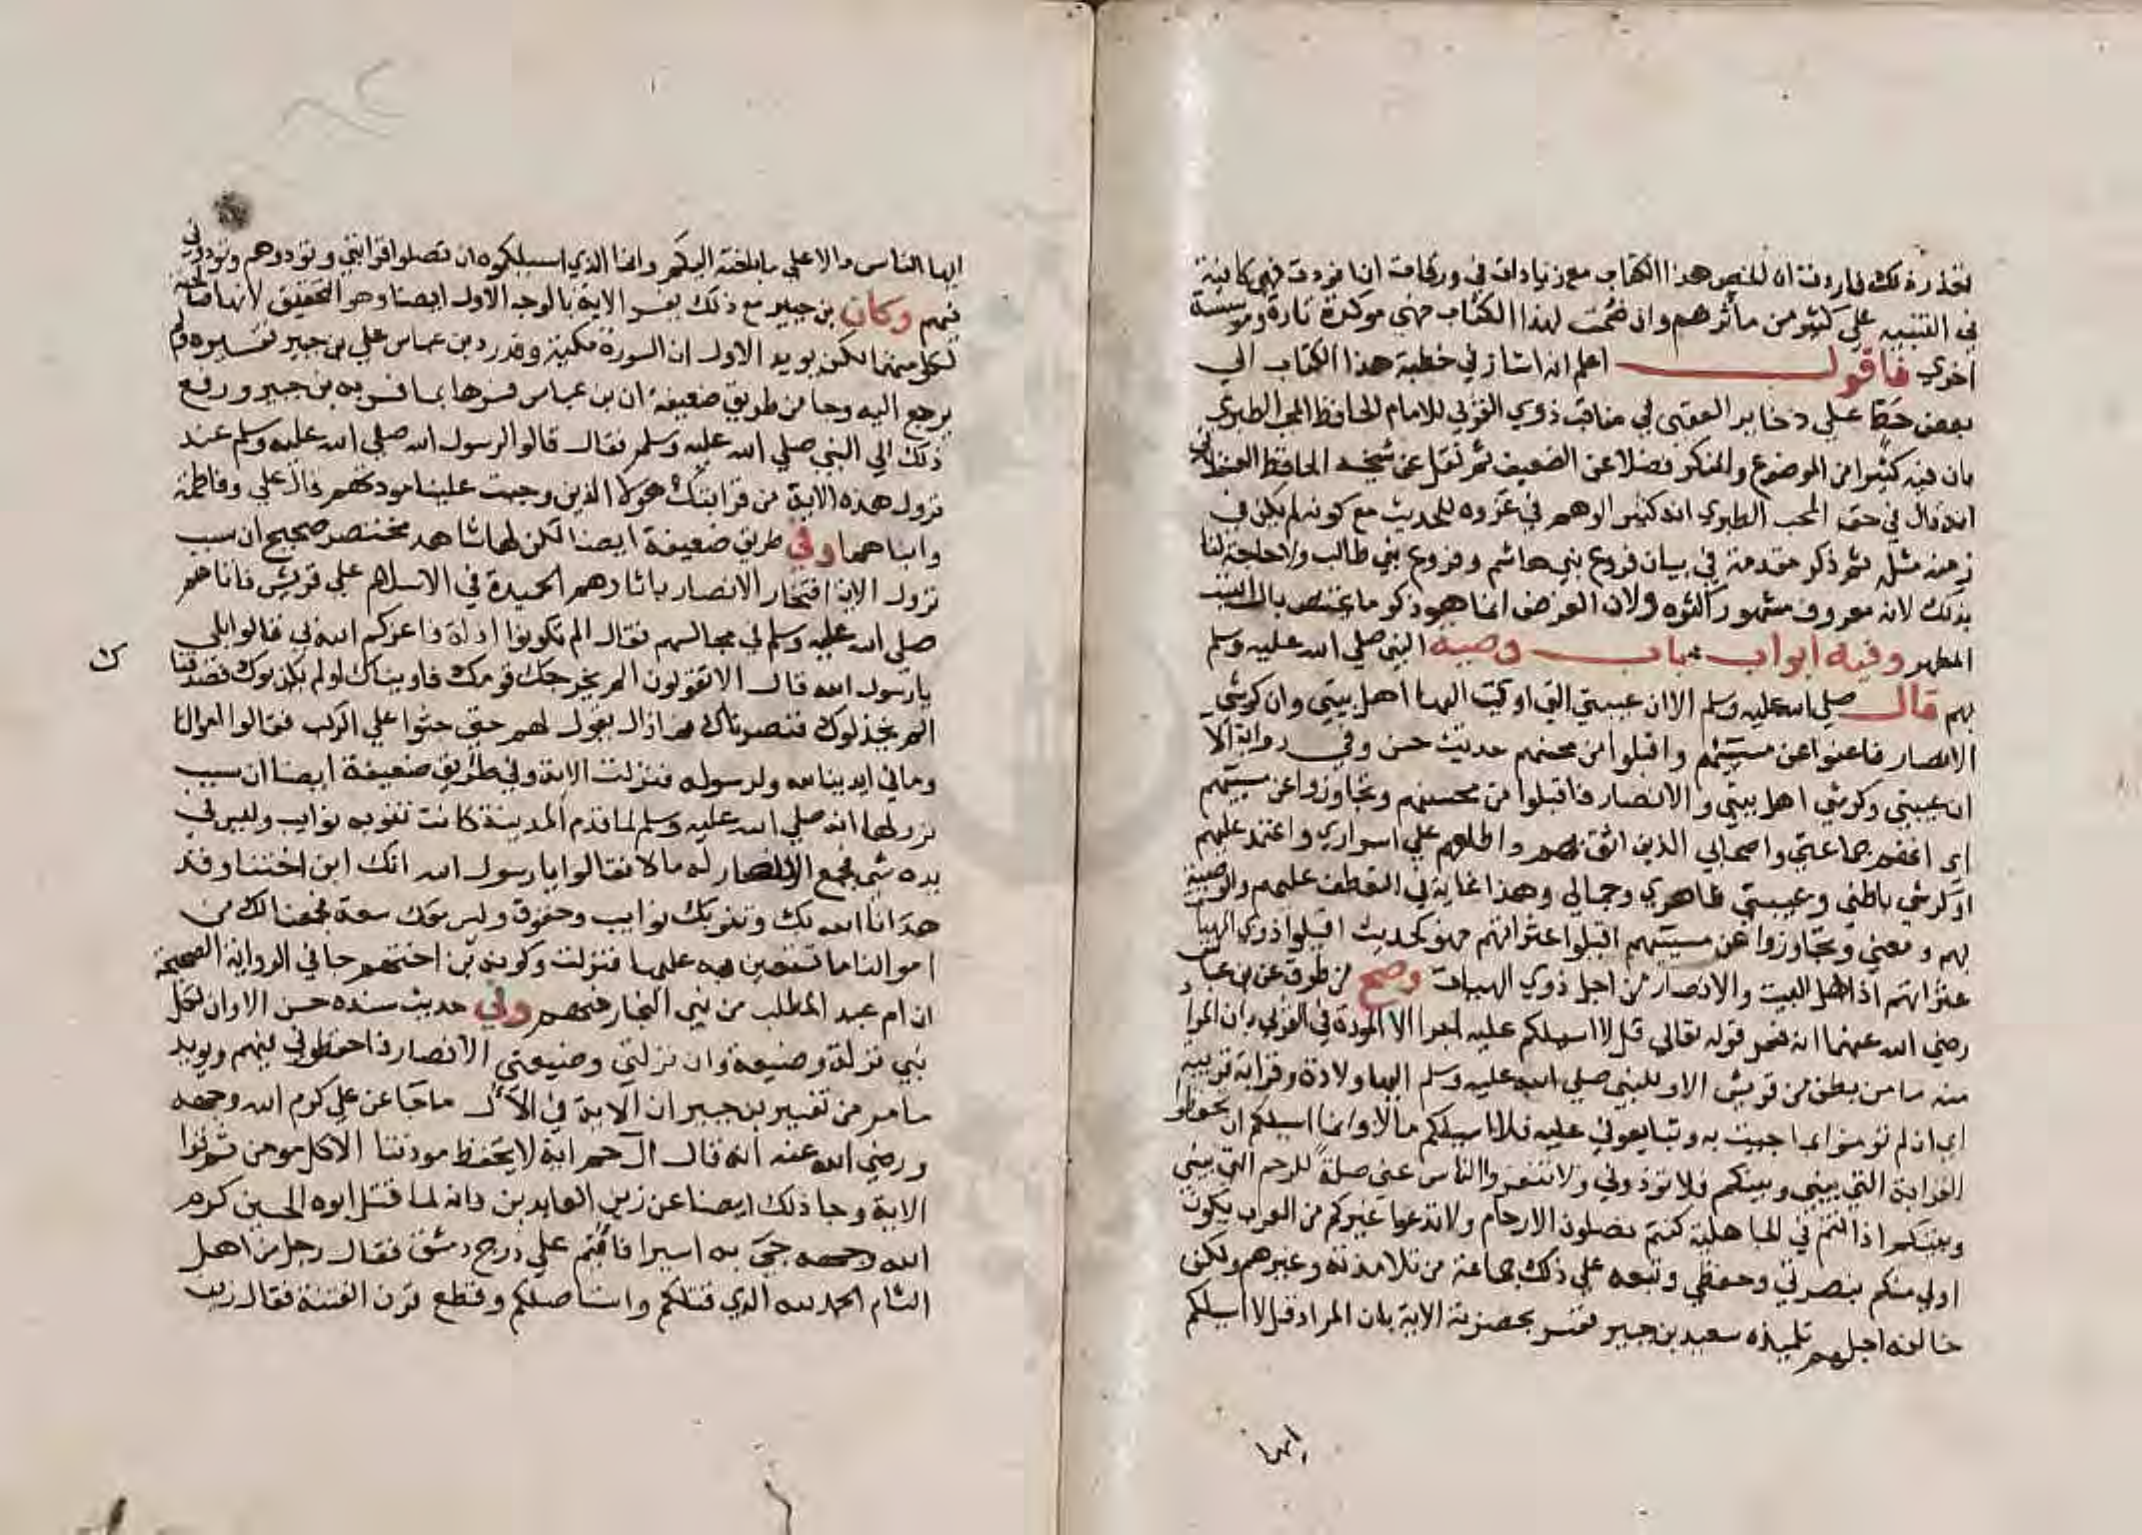 فحذرة لك فاردت ان الخص هذا الكتاب مع زيادات في ورقات ان افردت فهي كافية
في التنبيه علي كثير من مأثرهم وان ضمت لهذا الكتاب فهي موكدة تارة وموسسة
اخري فاقول اعلم انه اشار في خطبة هذا الكتاب الي
بعض حط علي دخاير العقبى في مناقب ذوي القربي للامام الحافظ المحب الطبري
بان فيه كثيرا من الموضوع والمنكر فضلا عن الضعيف ثم نقل عن شيخه الحافظ العسقلاني
انه قال في حق المحب الطبري انه كثير الوهم في عزوه للحديث مع كونه لم يكن في
زمنه مثله ثم ذكر مقدمة في بيان فروع بني هاشم وفروع بني طالب ولا حاجة لنا
بذلك لانه معروف مشهور كالذه ولان الغرض انما هو ذكر ما يختص بال البيت
المطهر وفيه ابواب باب وصية النبي صلي الله عليه وسلم
بهم قال صلي الله عليه وسلم الا ان عيبتي التي اوكيت اليها اهل بيتي وان كرشي
الانصار فاعفوا عن مسيئهم واقبلوا من محسنهم حديث حسن وفي رواية الا
ان عيبتي وكرشي اهل بيتي والانصار فاقبلوا من محسنهم وتجاوزوا عن مسيئهم
اي انهم جماعتي واصحابي الذين اثق بهم واطلعهم علي اسراري واعتمد عليهم
او كرشي باطني وعيبتي ظاهري وجمالي وهذا غاية في التعطف عليهم والوصية
لهم ومعني وتجاوزوا عن مسيئهم اقيلوا عثراتهم فهو كحديث اقيلوا ذوي الهيئات
عثراتهم اذ اهل البيت والانصار من اجل ذوي الهيات وصح من طرق عن بن عباس
رضي الله عنهما انه فسر قوله تعالي قل لا اسيلكم عليه اجرا الا المودة في القربي بان المراد
منه ما من بطن من قريش الا وللنبي صلي الله عليه وسلم اليها ولادة وقرابة قريبة
اي ان لم تومنوا بما جيت به وتبايعوني عليه فلا اسيلكم مالا وانما اسيلكم ان تحفظوا
القرابة التي بيني وبينكم فلا توذوني ولا تنفروا الناس عني صلة للرحم التي بيني
وبينكم اذ انتم في الجاهلية كنتم تصلون الارحام ولا تدعوا غيركم من العرب يكون
اولي منكم بنصرتي وحفظي وتبعه علي ذلك جماعة من تلامذته وغيرهم ولكن
خالفه اجلهم تلميذه سعيد بن جبير ففسر بحضرته الاية بان المراد قل لا اسيلكم
ايها
ايها الناس مالا علي ما بلغته اليكم وانما الذي اسيلكوه ان تصلوا قرابتي وتودوهم وتودوني
فيهم وكان بن جبير مع ذلك يفسر الاية بالوجه الاول ايضا وهو التحقيق لانها صالحة
لكل منهما لكن يويد الاول ان السورة مكية وقد رد بن عباس علي بن جبير تفسيره ولم
يرجع اليه وجا من طريق ضعيفة ان بن عباس فسرها بما فسر به بن جبير ورفع
ذلك الي النبي صلي الله عليه وسلم فقال قالوا لرسول الله صلي الله عليه وسلم عند
نزول هذه الاية من قرابتك هولا الذين وجبت علينا مودتهم قال علي وفاطمة
وابناهما وفي طريق ضعيفة ايضا لكن لها شاهد مختصر صحيح ان سبب
نزول الاية افتخار الانصار باثارهم الحميدة في الاسلام علي قريش فاتاهم
صلي الله عليه وسلم في مجالسهم فقال الم تكونوا اذلة فاعزكم الله بي قالوا بلي
يا رسول الله قال الا تقولون الم يخرجك قومك فاويناك اولم يكذبوك فصدقنا
ك
الم يخذلوك فنصرناك فما زال يقول لهم حتى جثوا علي الركب فقالوا اموالنا
وما في ايدينا لله ولرسوله فنزلت الاية وفي طريق ضعيفة ايضا ان سبب
نزولها انه صلي الله عليه وسلم لما قدم المدينة كانت تنوبه نوايب وليس في
يده شي فجمع الانصار له مالا فقالوا يا رسول الله انك ابن اختنا وقد
هدانا الله بك وتنوبك نوايب وحقوق وليس معك سعة فجمعنا لك من
اموالنا ما تستعين به عليها فنزلت وكونه بن اختهم جا في الرواية الصحيحة
ان ام عبد المطلب من بني النجار منهم وفي حديث سنده حسن الا وان لكل
نبي تركة وضيعة وان تركتي وضيعتي الانصار فاحفظوني فيهم ويويد
ما مر من تفسير بن جبير ان الاية في الآل ما جا عن علي كرم الله وجهه
ورضي الله عنه انه قال ال حم اية لا يحفظ مودتنا الا كل مومن ثم قرا
الاية وجا ذلك ايضا عن زين العابدين وانه لما قتل ابوه الحسين كرم
الله وجهه جي به اسيرا فاقيم علي درج دمشق فقال رجل من اهل
الشام الحمد لله الذي قتلكم واستاصلكم وقطع قرن الفتنة فقال زين